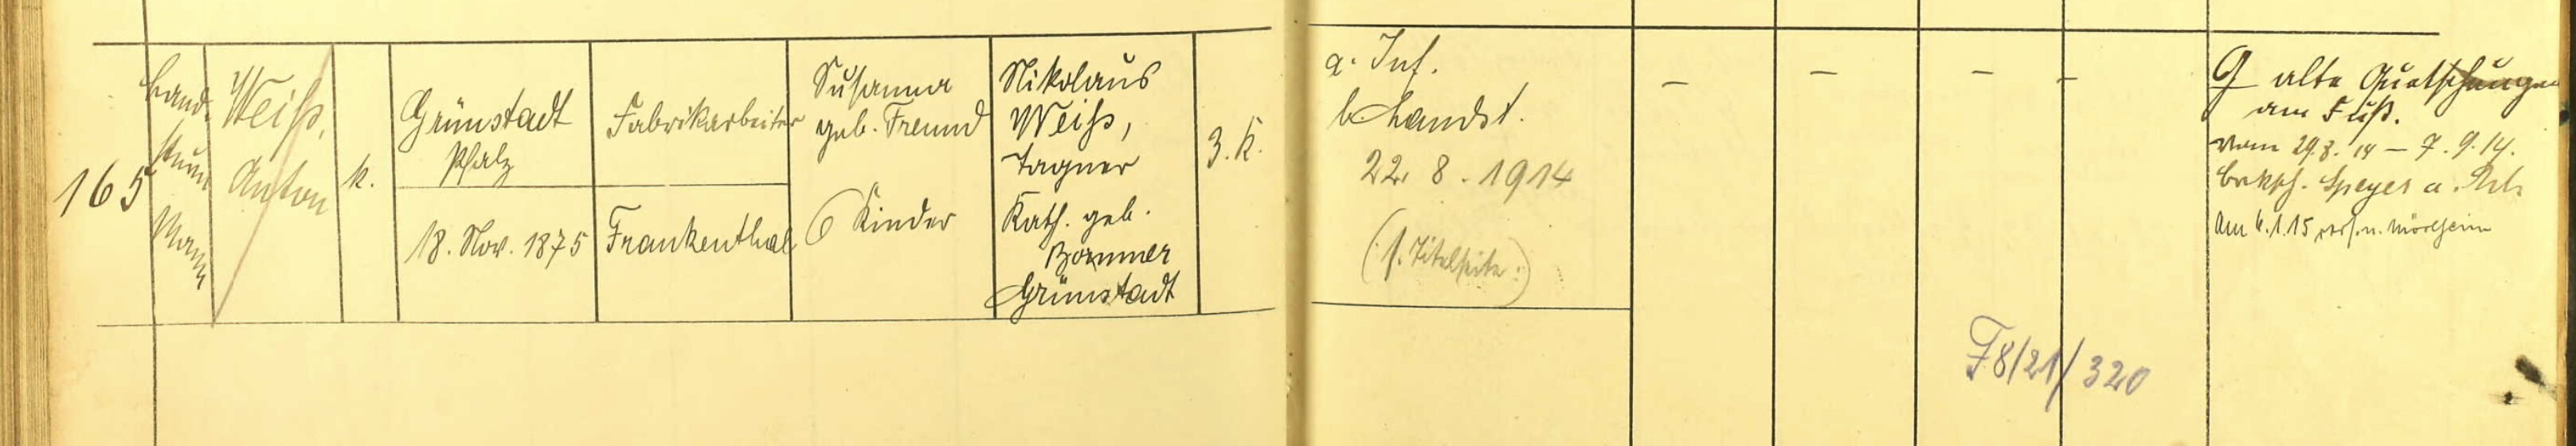 165
Land-
sturm
Mann
Weiß,
Anton
k.
Grünstadt
Pfalz
18. Nov. 1875
Fabrikarbeiter
Frankenthal
Susanna
geb. Freund
6 Kinder
Nikolaus
Weiß,
Tagner
Kath. geb.
Bommer
Grünstadt
3. K.
a. Inf.
b Landst.
22. 8. 1914
(s. Titelseite.)
–
–
–
–
F 8/21/320
alte Quetschungen
am Fuß.
vom 29.8.14 – 7.9.14.
Speyer a. Rh.
Am 6.1.15 vers. n. Mörlheim